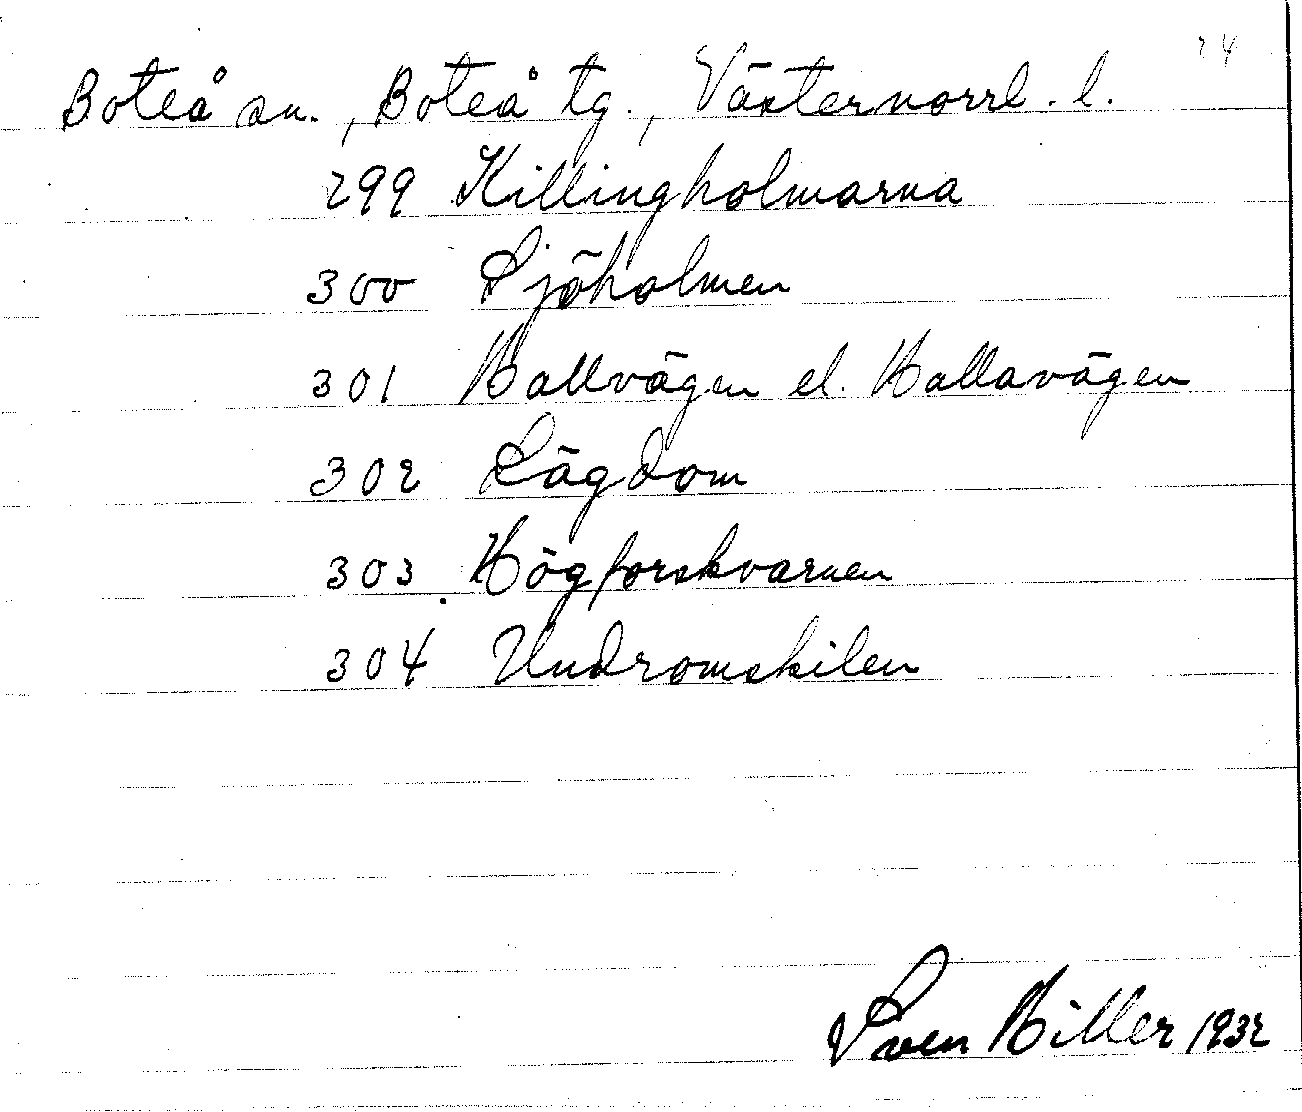 24
Boteå sn., Boteå tg., Västernorrl. l.
299 Killingholmarna
300 Sjöholmen
301 Hallvägen el. Hallavägen
302 Lägdom
303 Högforskvarnen
304 Undromskilen
Sven Hiller 1932